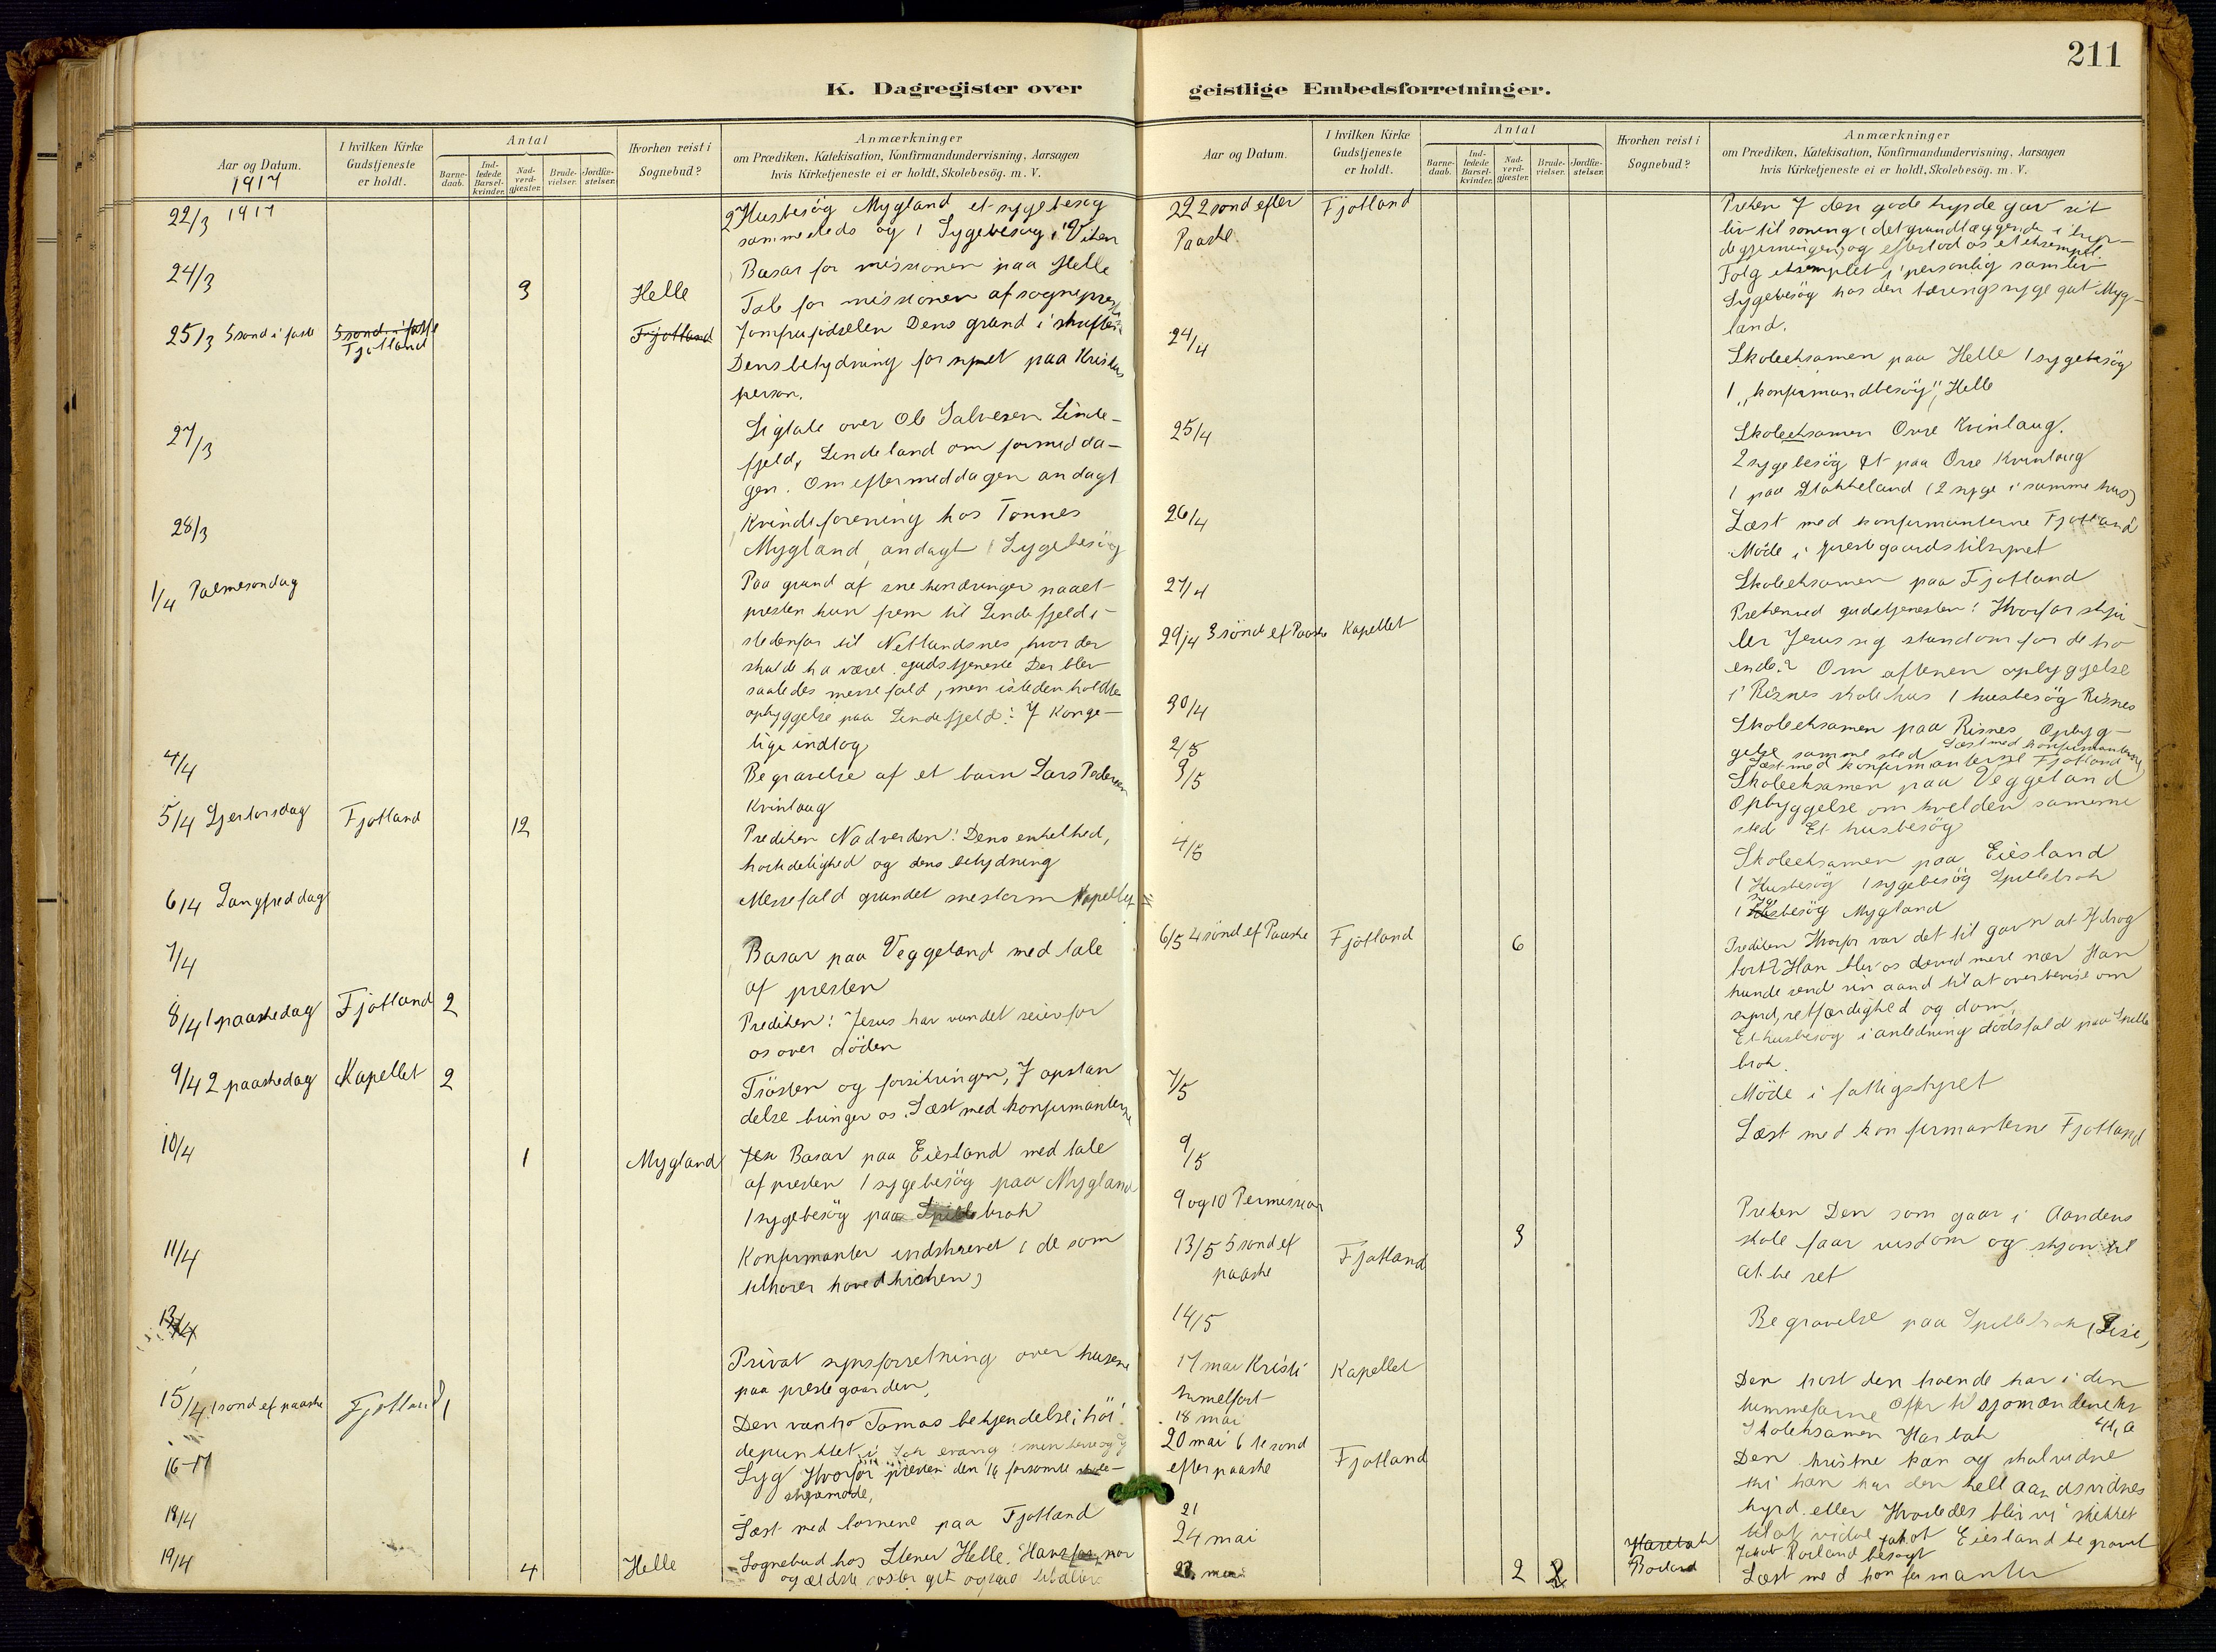 211
K. Dagregister over geistlige Embedsforretninger.
Aar og Datum.
1917
I hvilken Kirke
Gudstjeneste
er holdt.
Antal
Barne-
daab.
Ind-
ledede
Barsel-
kvinder.
Nad-
verd-
gjæster.
Brude-
vielser.
Jordfæ-
stelser.
Hvorhen reist i
Sognebud?
Anmærkninger
om Prædiken, Katekisation, Konfirmandundervisning, Aarsagen
hvis Kirketjeneste ei er holdt, Skolebesög. m. V.
22/3 1917
2 Husbesög Mygland et sygebesøg
sammesteds og 1 Sygebesøg i Viken
24/3
3
Helle
Basar for missionen paa Helle
Tale for missionen af sognepresten
25/3 5 sond i faste
5 sond i faste
Fjotland
Fjotland
Jomfrufødselen Dens grund i skriften
Dens betydning for synet paa Kristus
person.
27/3
Ligtale over Ole Salvesen Linde-
fjeld, Lindeland om formidda-
gen. Om eftermiddagen andagt
28/3
Kvindeforening hos Tonnes
Mygland, andagt 1 Sygebesög
1/4 Palmesondag
Paa grund af sne hindringer naaet
presten kun frem til Lindefjeld i
stedenfor til Netlandsnes, hvor der
skulde ha været gudstjeneste Der blev
saaledes messefald, men isteden holdtes
opbyggelse paa Lindefjeld: J Konge-
lige indtog
4/4
Begravelse af et barn Lars Pedersen
Kvinlaug
5/4 Sjertorsdag
Fjotland
12
Prediken Nadverden: Dens enkelhed,
høitidelighed og dens betydning
6/4 Langfreddag
Messefald grundet snestorm Kapellet
7/4
Basar paa Veggeland med tale
af presten
8/4 1 paaskedag
Fjotland
2
Prediken: Jesus har vundet seier for
os over döden
9/4 2 paaskedag
Kapellet
2
Trösten og forsikringen, J opstan
delse bringer os. Læst med konfirmanterne
10/4
1
Mygland
Basar paa Eiesland med tale
af presten 1 sygebesög paa Mygland
1 sygebesög paa Spillebrok
11/4
Konfirmanter indskrevet (de som
tilhører hovedkirken)
13/4
Privat synsforretning over husene
paa prestegaarden,
15/4 1 sond ef paaske
Fjotland
1
Den vantro Tomas bekjendelse, höi-
depunktet i Joh evang:
16-17
Syg Hvorfor presten den 16 forsømte skole-
styremøde,
18/4
Læst med barnene paa Fjotland
19/4
4
Helle
Sognebud hos Stener Helle. Hans mor
og ældste søster git ogsaa
Aar og Datum.
I hvilken Kirke
Gudstjeneste
er holdt.
Antal
Barne-
daab.
Ind-
ledede
Barsel-
kvinder.
Nad-
verd-
gjæster.
Brude-
vielser.
Jordfæ-
stelser.
Hvorhen reist i
Sognebud?
Anmærkninger
om Prædiken, Katekisation, Konfirmandundervisning, Aarsagen
hvis Kirketjeneste ei er holdt, Skolebesög. m. V.
22 2 sond efter
Paaske.
Fjotland
Preken J den gode hyrde gav sit
liv til soning (det grundlæggende i hyr-
degjerningen) og efterlod os et eksempel
Følg eksemplet i personlig samliv
Sygebesög hos den tæringsyge gut Myg-
land.
24/4
Skoleeksamen paa Helle 1 sygebesög
1 „konfirmandbesög", Helle
25/4
Skoleeksamen Övre Kvinlaug.
2 sygebesög Et paa Övre Kvinlaug
1 paa Stakkeland (2 syge i samme hus)
26/4
Læst med konfirmanterne Fjotland
Möde i prestegaardstilsynet
27/4
Skoleeksamen paa Fjotland
29/4 3 sönd ef Paaske
Kapellet
Preken ved gudstjenesten: Hvorfor skju-
ler Jesus sig stundom for de tro
ende? Om aftenen opbyggelse
i Risnes skolehus 1 husbesög Risnes
30/4
Skoleeksamen paa Risnes Opbyg-
gelse samme sted
2/5
Læst med konfirmanterne Fjotland
3/5
Skoleeksamen paa Veggeland
Opbyggelse om kvelden samme
sted Et husbesög
4/5
Skoleeksamen paa Eiesland
1 Husbesög 1 sygebesög Spillebrok
1 sygebesög Mygland
6/5 4 sönd ef Paaske
Fjotland
6
Prediken Hvorfor var det til gavn at J drog
bort? Han blev os derved mere nær Han
kunde sende sin aand til at overbevise om
synd, retfærdighed og dom,
Et husbesög i anledning dödsfald paa Spille
brok.
7/5
Möde i fattigstyret
Læst med konfirmanterne Fjotland
9/5
9 og 10 Permission
13/5 5 sond ef
paaske
Fjotland
3
Preken Den som gaar i Aandens
skole faar visdom og skjøn til
at be ret
14/5
Begravelse paa Spillebrok
17 mai Kristi
himmelfart
Kapellet
Den trøst den troende har i den
himmelfarne Offer til sjømændene kr
18 mai
Skoleeksamen
20 mai 6 te sond
efter paaske
Fjotland
Den kristne kan og skal vidne
thi han har den hell aan dsvidnes
byrd. eller Hvorledes blir vi skikket
til at vidne
21
Eiesland begravet
24 mai
Roiland
besøgt
mai
2
Læst med konfirmanter